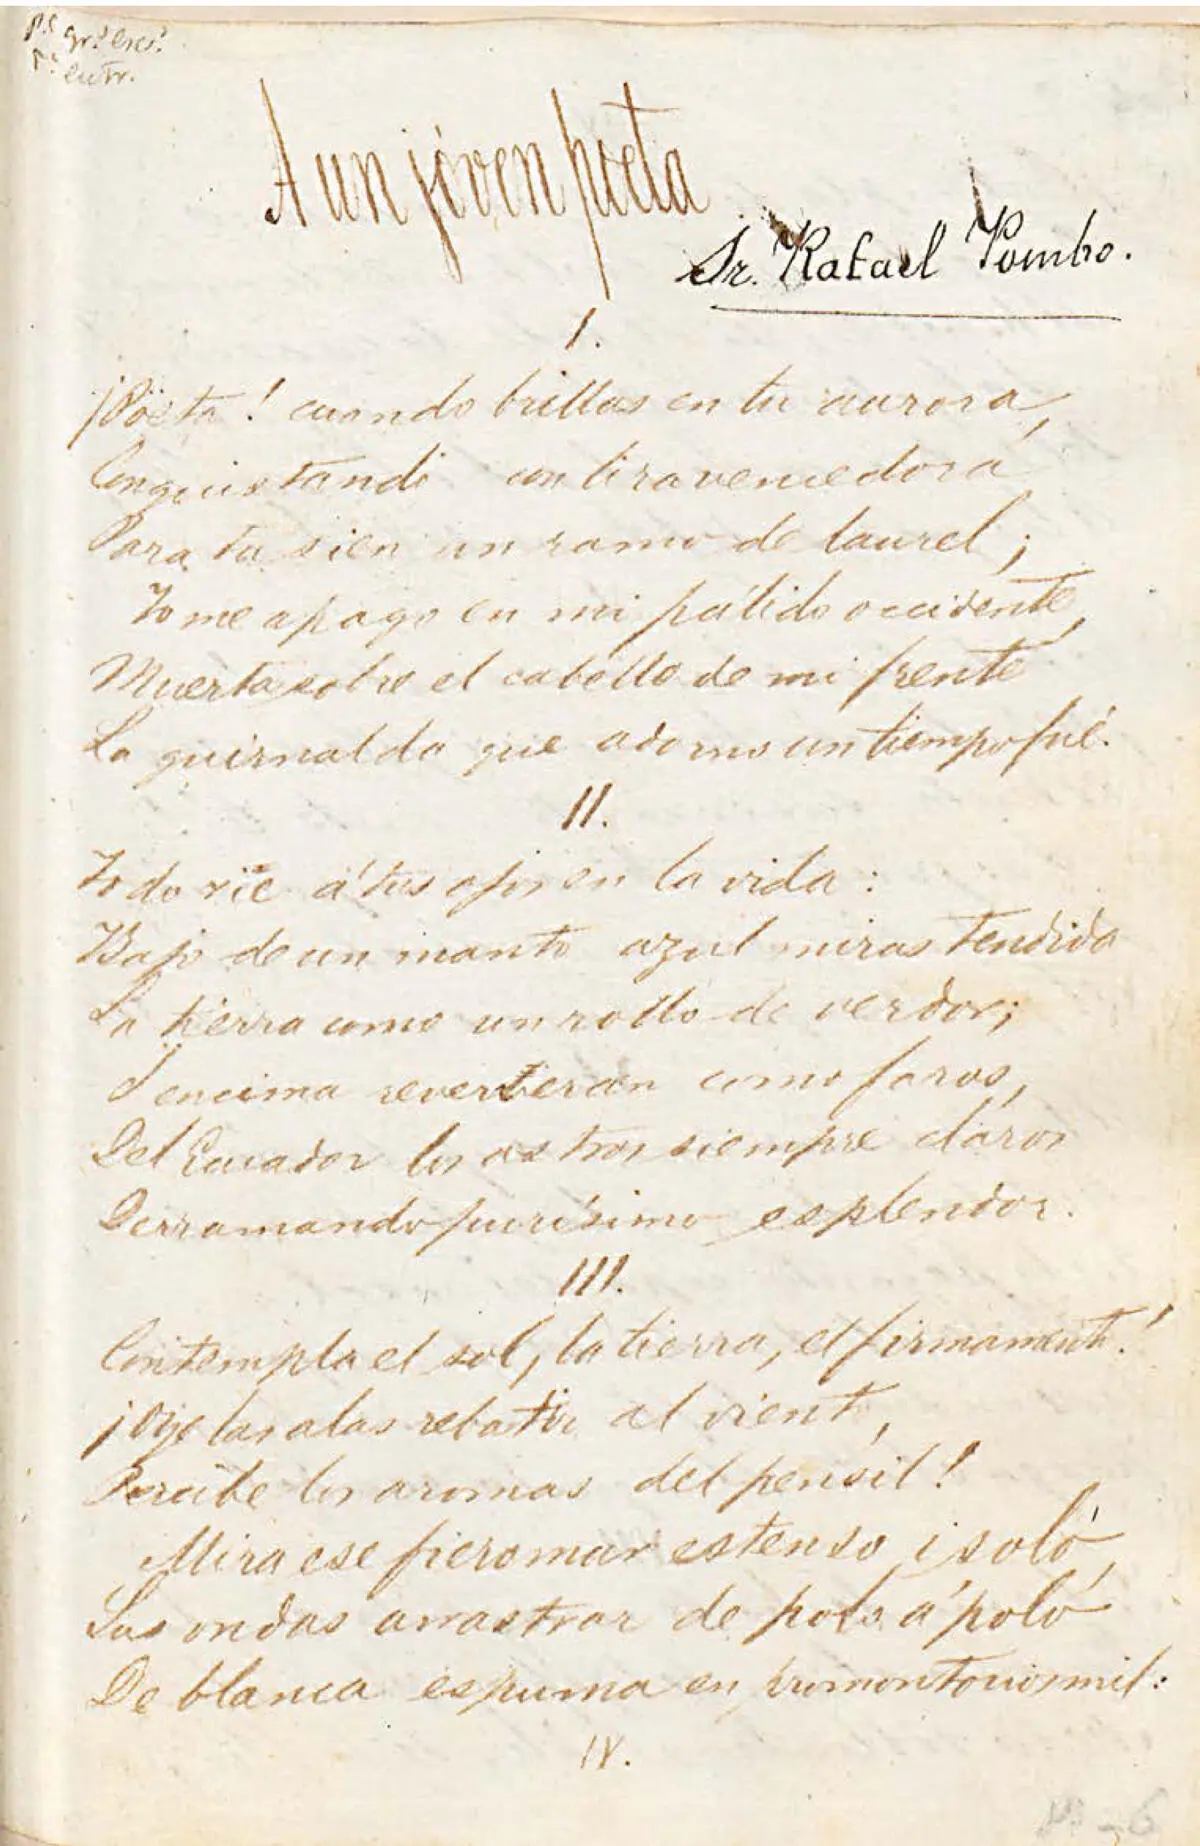 A un jóven poeta
Sr. Rafael Pombo.
I.
¡Pöeta! cuando brillas en tu aurora,
Conquistando con lira vencedora
Para tu sien un ramo de laurel;
Yo me apago en mi pálido occidente,
Muerta sobre el cabello de mi frente
La guirnalda que adorno un tiempo fué.
II.
Todo rie á tus ojos en la vida:
Bajo de un manto azul miras tendida
La tierra como un rollo de verdor;
I encima reverberan como faros,
Del Ecuador los astros siempre claros
Derramando purísimo esplendor.
III.
Contempla el sol, la tierra, el firmamento!
¡Oye las alas rebatir al viento,
Percibe los aromas del pensil!
Mira ese fiero mar estenso i solo,
Sus ondas arrastrar de polo á polo
De blanca espuma en promontorios mil:
IV.